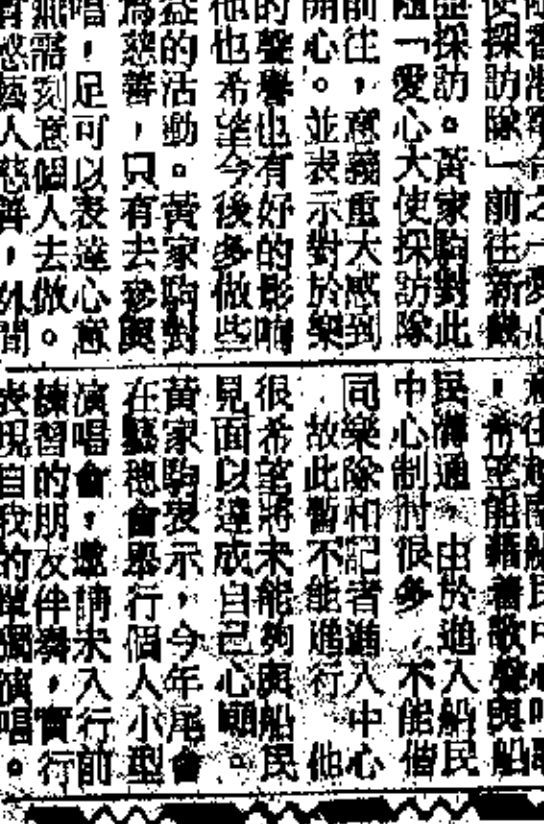 使探訪隊」前往新
採訪。黃家駒對此
隨「愛心大使採訪隊
前往,意義重大感到
開心。並表示對於樂
的聲譽也有好的影响
他也希望今後多做些
益的活動。黃家駒對
為慈善,只有去參與
唱,足可以表達心意
無需刻意個人去做。
有感藝人慈善,外間
往越南船民中心唱
,希望能藉着歌聲與船
民溝通,由於進入船民
中心制肘很多,不能偕
同樂隊和記者進入中心
故此暫不能進行,他
很希望將來能夠與船民
見面以達成自己心願。
黃家駒表示,今年尾會
在藝穗會舉行個人小型
演唱會,邀請未入行前
練習的朋友伴奏,實行
表現自我的單獨演唱。